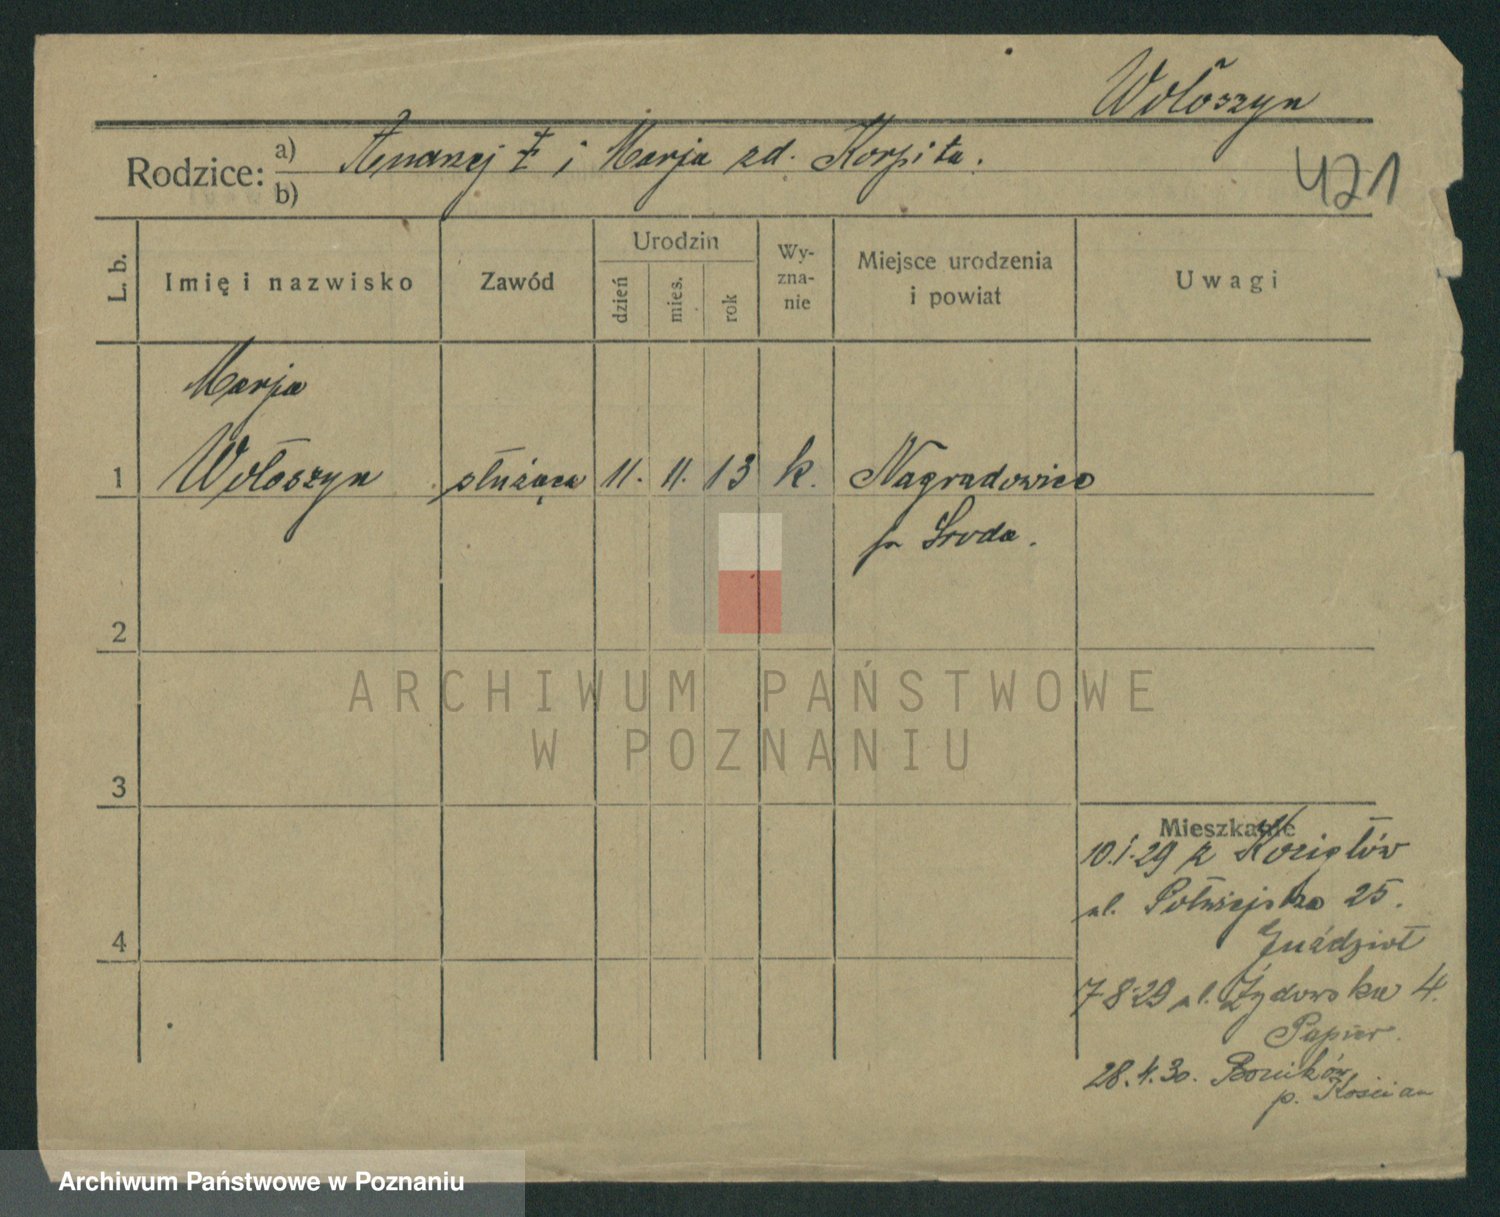 Wołoszyn
Rodzice: a) i Marja zd. Korpita.
b)
421
L. b. Imię i nazwisko Zawód Urodzin dzień mies. rok Wy-zna-nie Miejsce urodzenia i powiat Uwagi
Marja
1 Wołoszyn służąca 11. 11. 13 k. Nagradowice
p Sroda.
2
ARCHIWUM PAŃSTWOWE
W POZNANIU
3
Mieszkanie
10.1.29 z Kozigłów
ul. Półwiejska 25.
4
7-8-29 ul. Żydowska 4.
Papier.
28.4.30. p. Kościan
Archiwum Państwowe w Poznaniu